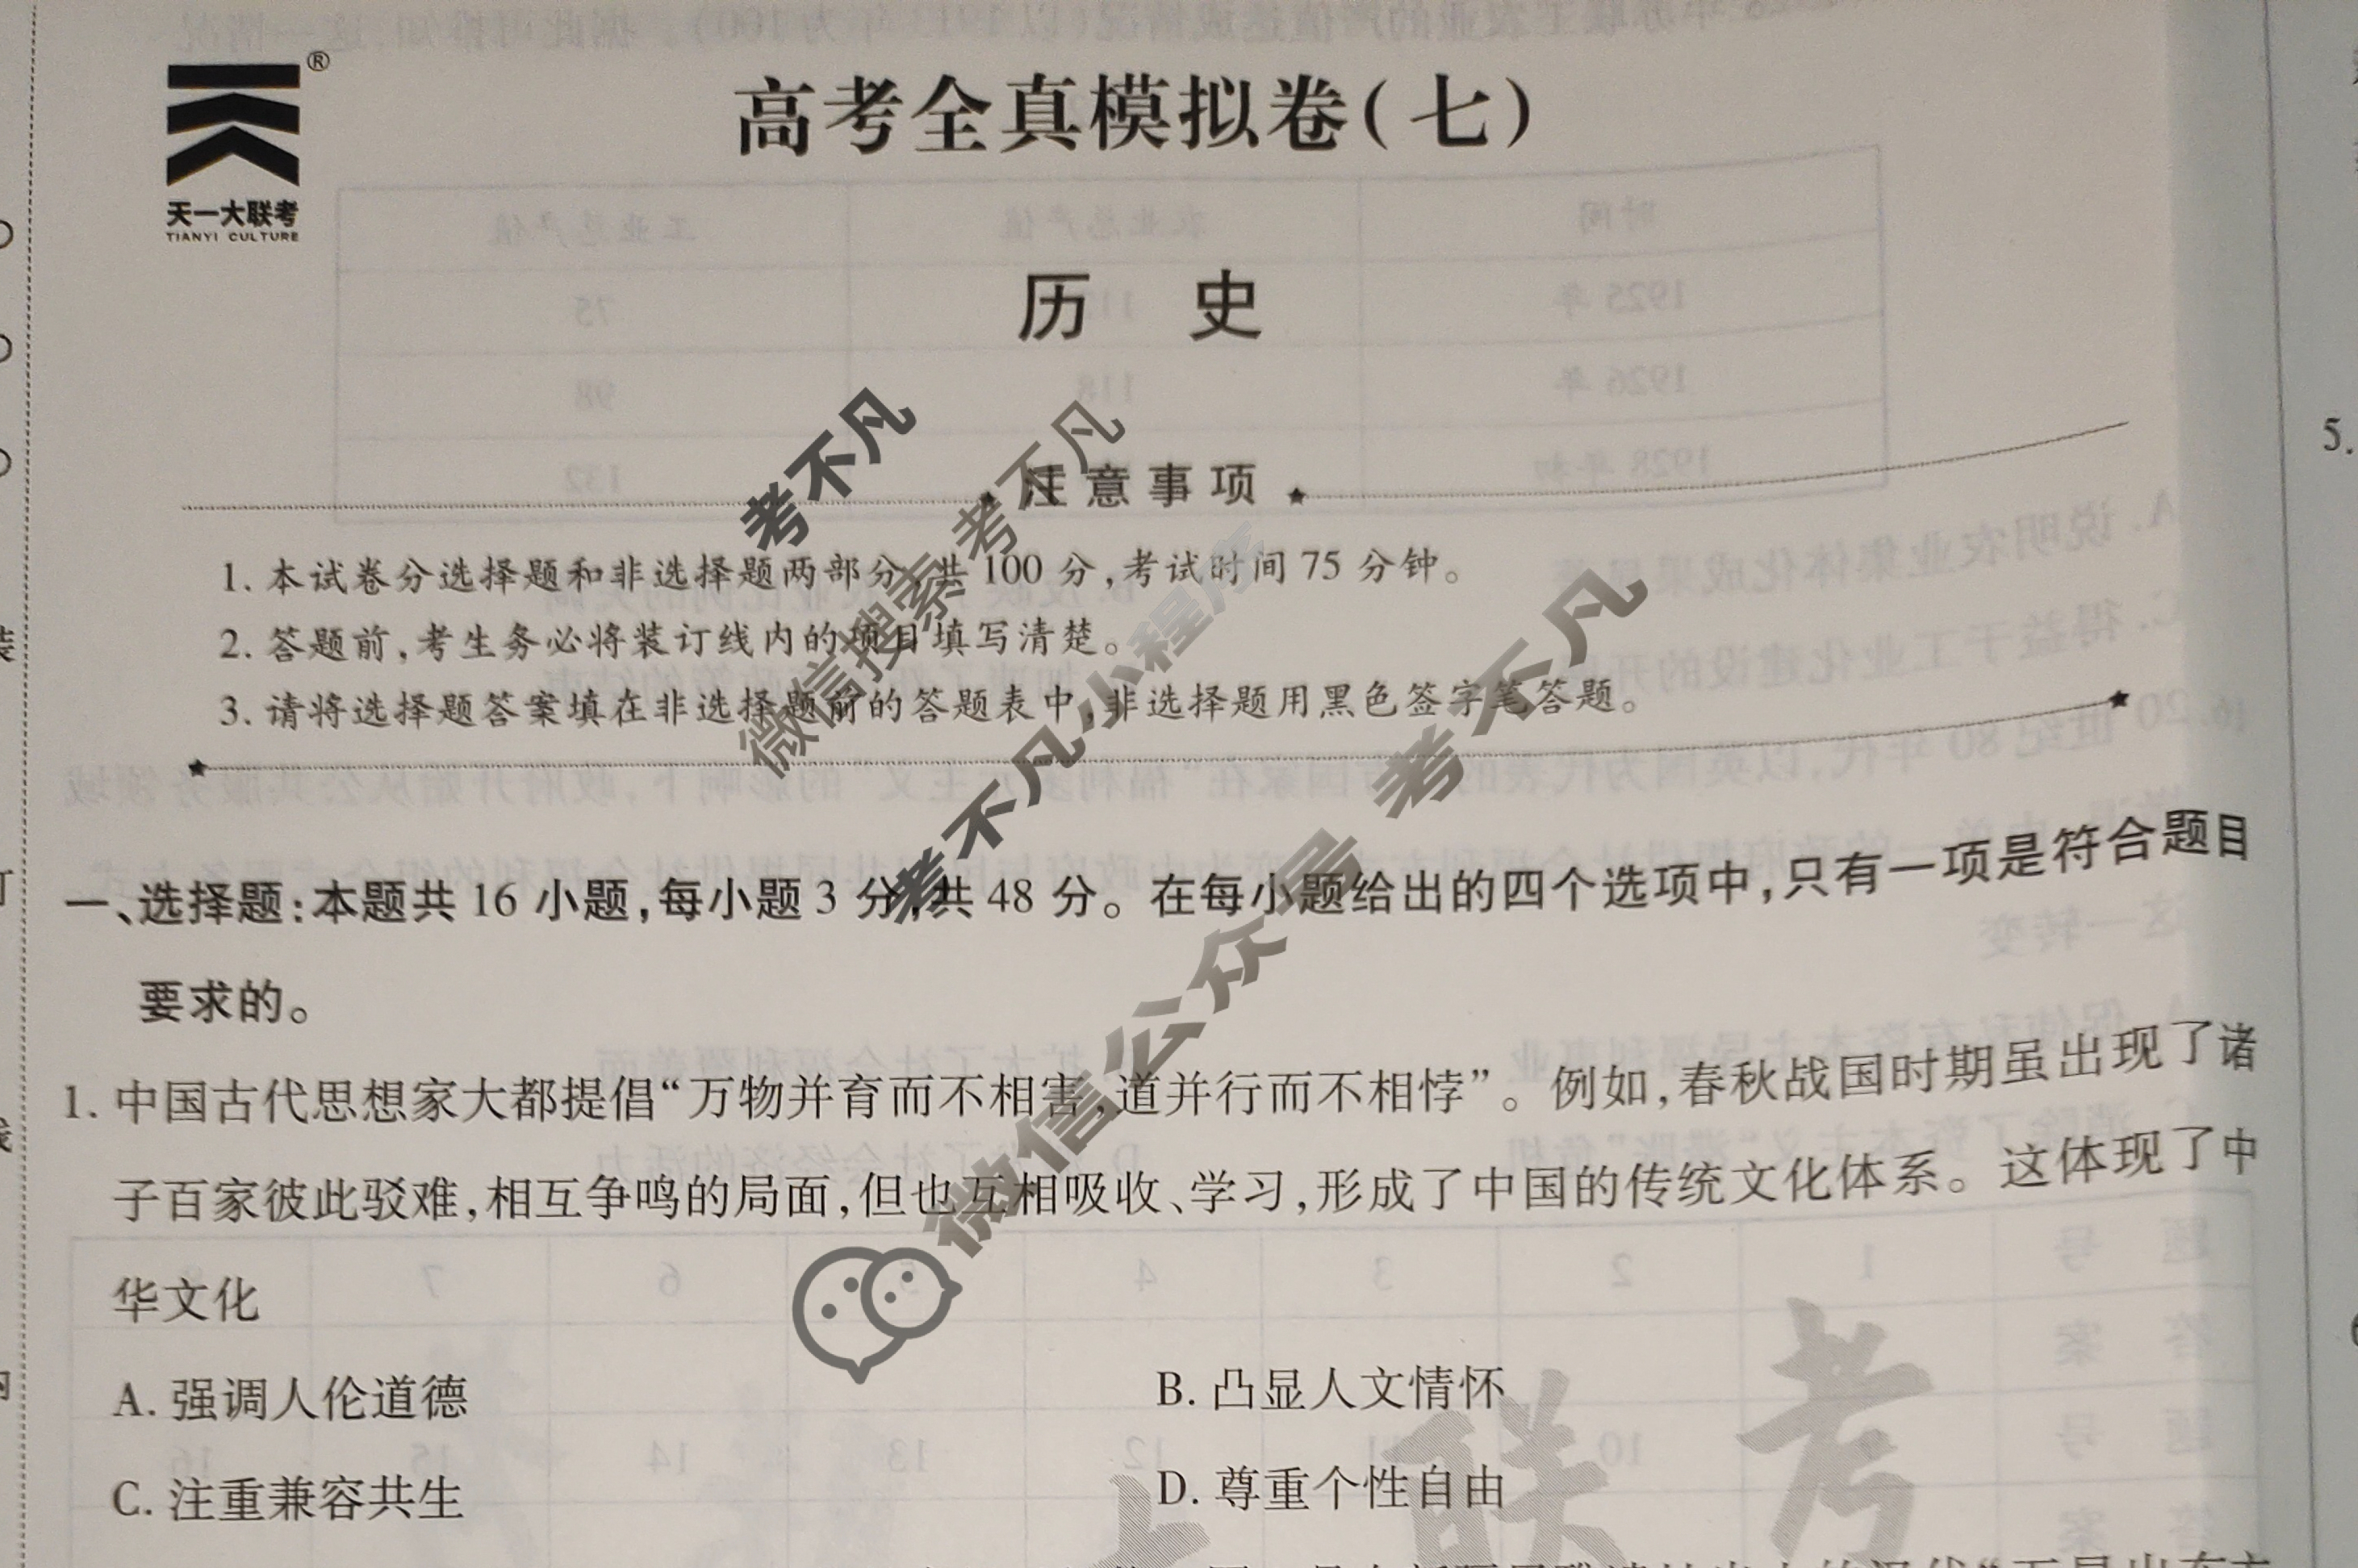 ®
高考全真模拟卷(七)
天一大联考
TIANYI CULTURE
历 史
★ 注意事项 ★
1. 本试卷分选择题和非选择题两部分,共 100 分,考试时间 75 分钟。
2. 答题前,考生务必将装订线内的项目填写清楚。
3. 请将选择题答案填在非选择题前的答题表中,非选择题用黑色签字笔答题。
一、选择题:本题共 16 小题,每小题 3 分,共 48 分。在每小题给出的四个选项中,只有一项是符合题目
要求的。
1. 中国古代思想家大都提倡“万物并育而不相害,道并行而不相悖”。例如,春秋战国时期虽出现了诸
子百家彼此驳难,相互争鸣的局面,但也互相吸收、学习,形成了中国的传统文化体系。这体现了中
华文化
A. 强调人伦道德
B. 凸显人文情怀
C. 注重兼容共生
D. 尊重个性自由
5.
考不凡
微信搜索 考不凡
考不凡小程序
微信公众号 考不凡
联考